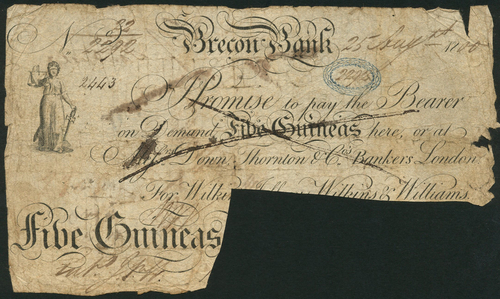 N 32/2292 Brecon Bank 25 Augst 1800
2443
I Promise to pay the Bearer
on Demand Five Guineas here, or at
Down Thornton & Co. Bankers London
For Wilkins & Williams
Five Guineas